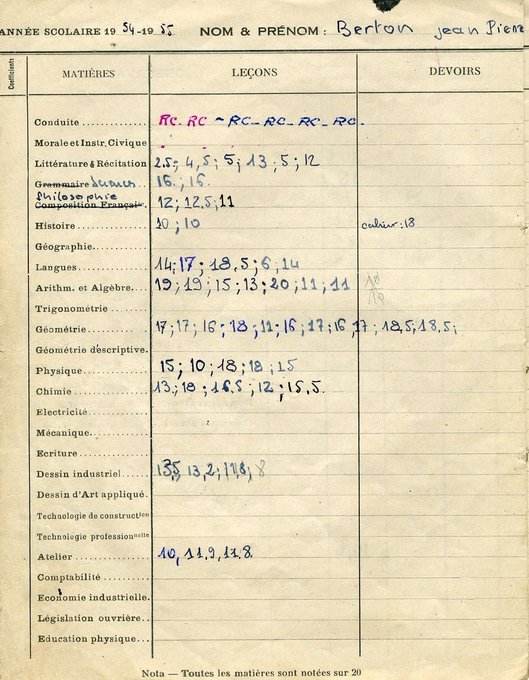 ANNÉE SCOLAIRE 19 54-19 55 NOM & PRÉNOM : Berton Jean Pierre
Coefficients MATIÈRES LEÇONS DEVOIRS
Conduite RC. RC - RC - RC - RC - RC.
Morale et Instr. Civique
Littérature & Récitation 2.5; 4,5; 5; 13; 5; 12
Grammaire Sciences 16.; 16.
Philosophie
Composition Français 12; 12,5; 11
Histoire 10; 10 cahier: 18
Géographie
Langues 14; 17; 18,5; 6; 14
Arithm. et Algèbre 19; 19; 15; 13; 20; 11; 11 10
10
Trigonométrie
Géométrie 17; 17; 16; 18; 11; 16; 17; 16, 17; 18,5; 18,5;
Géométrie descriptive.
Physique 15; 10; 18; 18; 15
Chimie 13; 18; 16.5; 12; 15,5.
Electricité
Mécanique
Ecriture
Dessin industriel 13,5, 13,2; 11,8; 8
Dessin d'Art appliqué.
Technologie de construction
Technologie professionnelle
Atelier 10, 11.9, 11.8
Comptabilité
Economie industrielle.
Législation ouvrière
Education physique
Nota — Toutes les matières sont notées sur 20